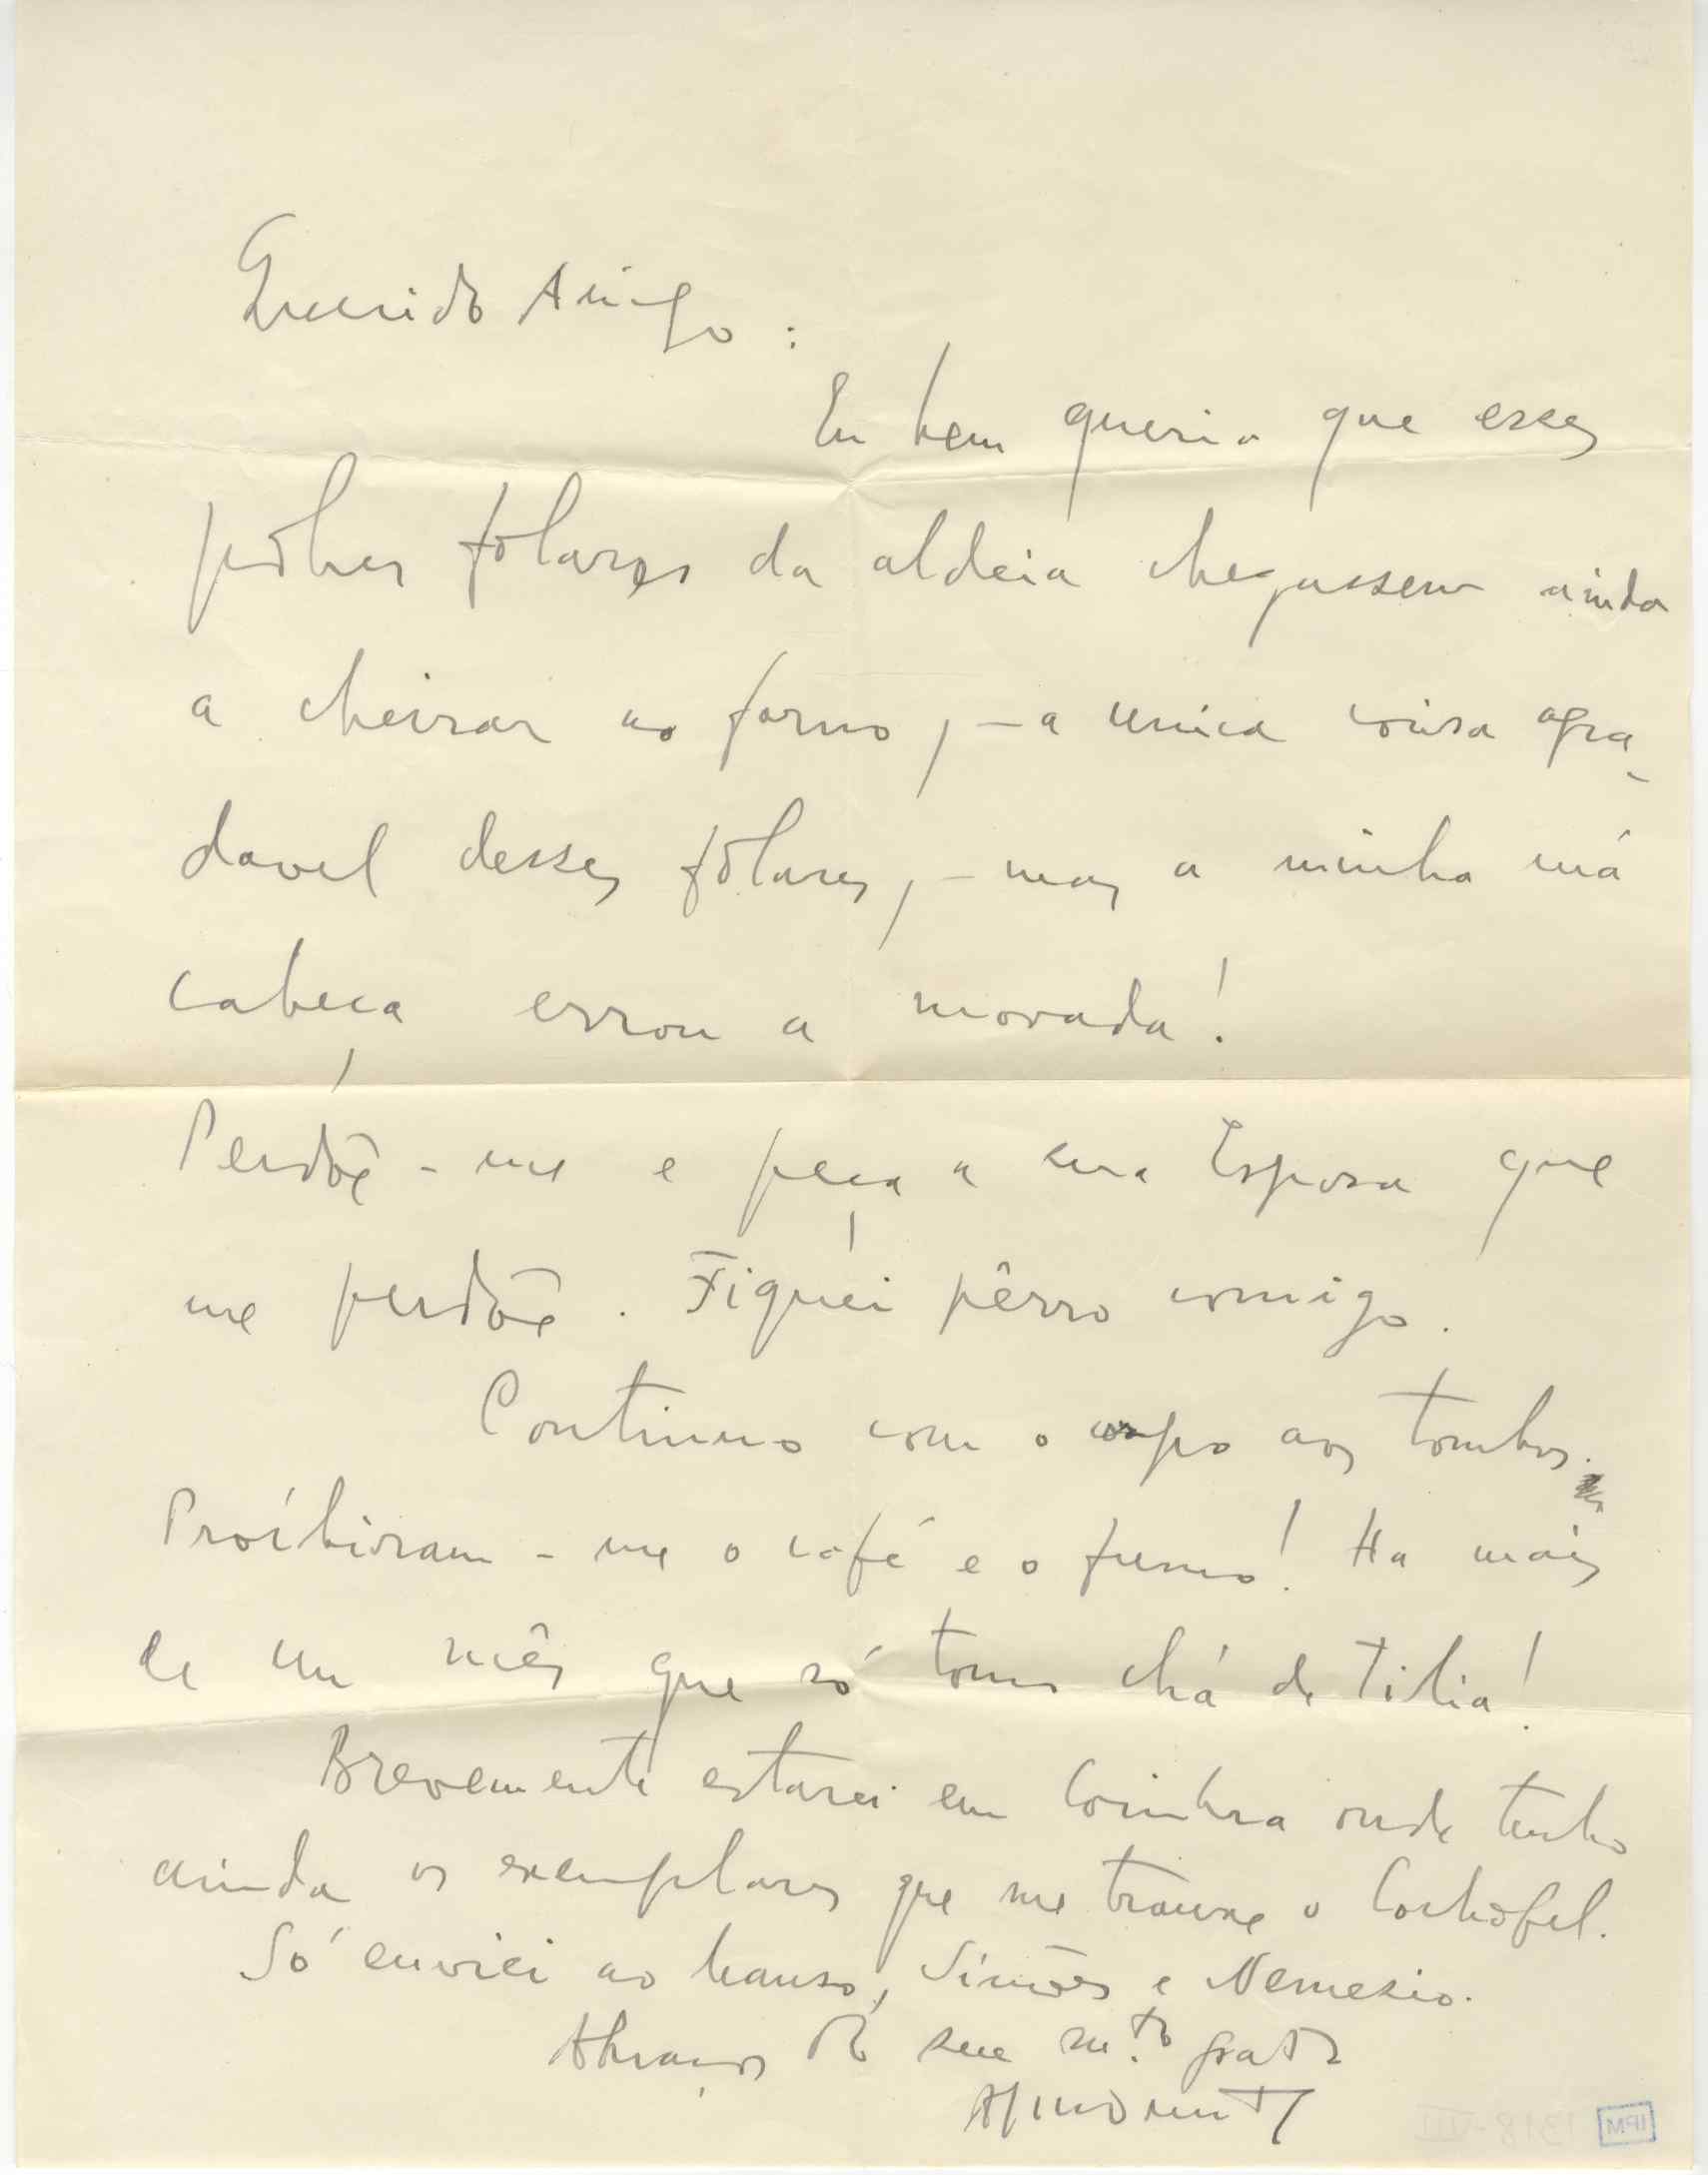 Querido Amigo:
Eu bem queria que esses
pobres folares da aldeia chegassem ainda
a cheirar ao forno, – a unica coisa agra-
davel desses folares, – mas a minha má
cabeça errou a morada!
Perdõe-me e peça a sua Esposa que
me perdõe. Fiquei pêrro comigo.
Continuo com o corpo aos tombos.
Proíbiram-me o café e o fumo! Ha mais
de um mês que só tomo chá de tilia!
Brevemente estarei em Coimbra onde tenho
ainda os exemplares que me trouxe o Cochofel.
Só enviei ao, Simões e Nemesio.
Abraços do seu m.to grato